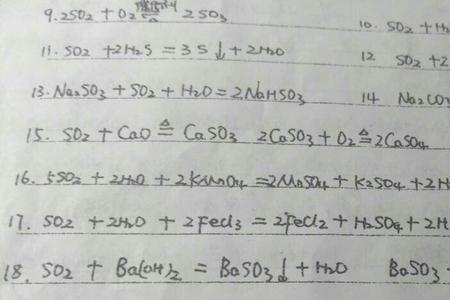 9. 2SO₂ + O₂ ⇌ 2SO₃
10. SO₂ + H₂
11. SO₂ + 2H₂S = 3S↓ + 2H₂O
12 SO₂ + 2
13. Na₂SO₃ + SO₂ + H₂O = 2NaHSO₃
14 Na₂CO₃
15. SO₂ + CaO ≜ CaSO₃ 2CaSO₃ + O₂ ≜ 2CaSO₄
16. 5SO₂ + 2H₂O + 2KMnO₄ = 2MnSO₄ + K₂SO₄ + 2H
17. SO₂ + 2H₂O + 2FeCl₃ = 2FeCl₂ + H₂SO₄ + 2H
18. SO₂ + Ba(OH)₂ = BaSO₃↓ + H₂O BaSO₃ +